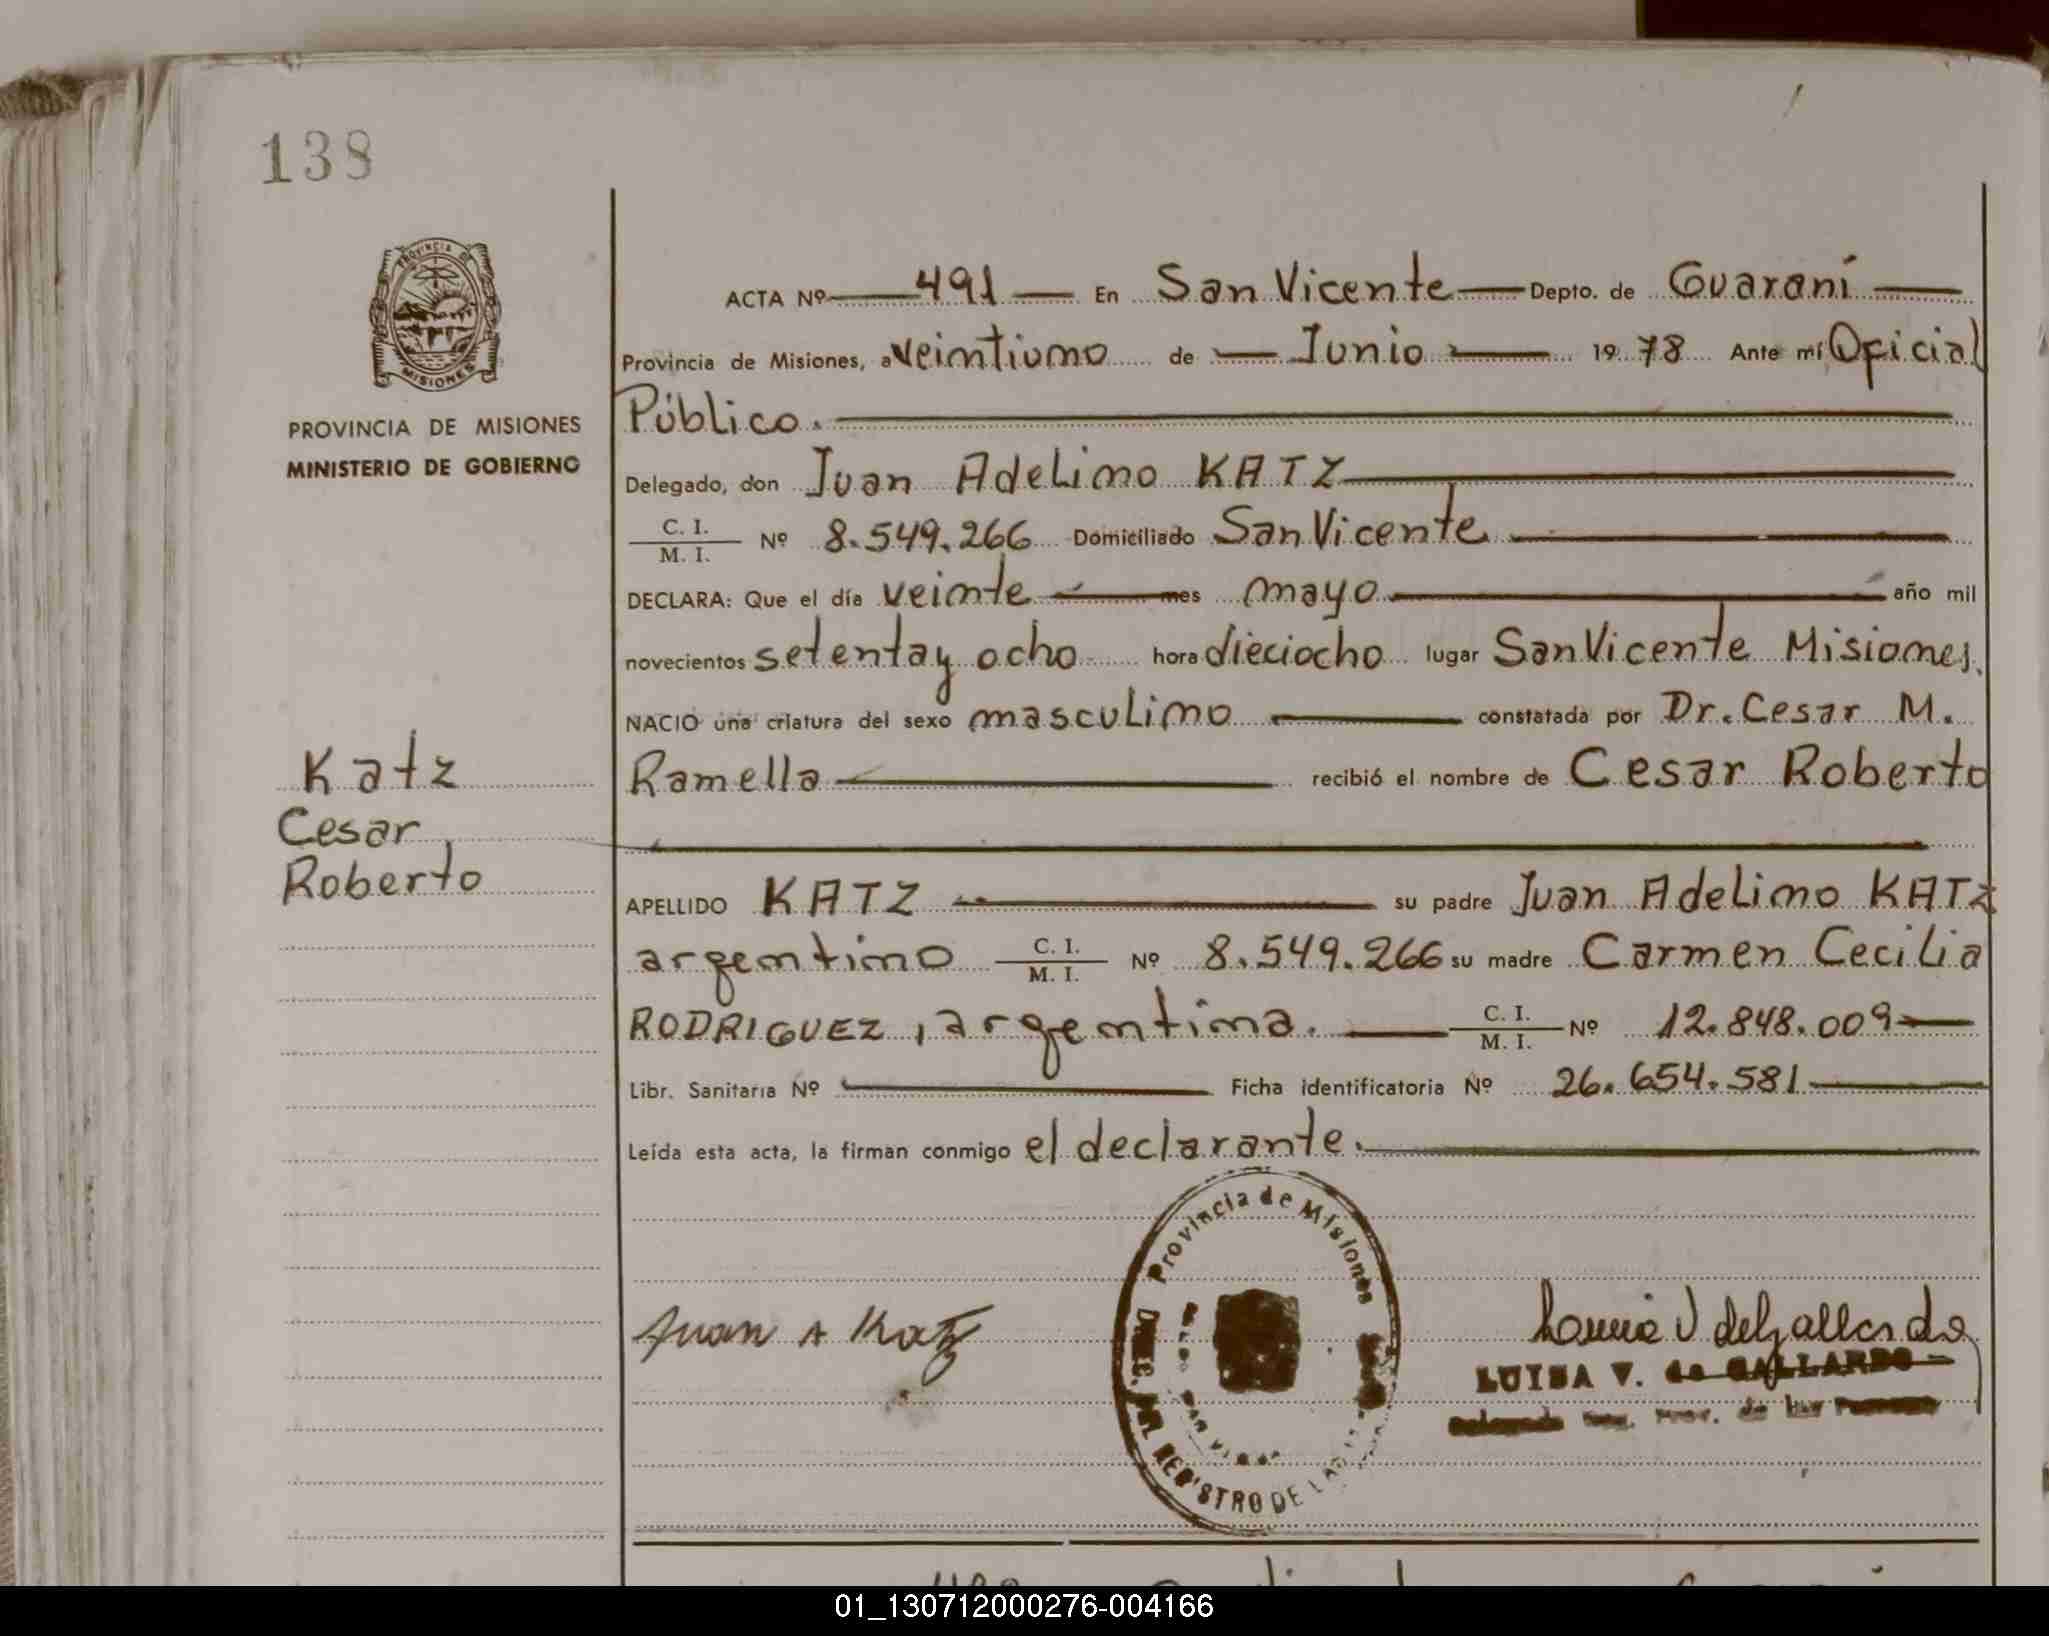 138
PROVINCIA DE
MISIONES
PROVINCIA DE MISIONES
MINISTERIO DE GOBIERNO
ACTA Nº 491 En San Vicente Depto. de Guaraní
Provincia de Misiones, a veintiuno de Junio 19 78 Ante mí Oficial
Público.
Delegado, don Juan Adelino KATZ
C. I.
M. I. Nº 8.549.266 Domiciliado San Vicente
DECLARA: Que el día veinte mes mayo año mil
novecientos setenta y ocho hora dieciocho lugar San Vicente Misiones.
NACIO una criatura del sexo masculino constatada por Dr. Cesar M.
Ramella recibió el nombre de Cesar Roberto
Katz
Cesar
Roberto
APELLIDO KATZ su padre Juan Adelino KATZ
argentino C. I.
M. I. Nº 8.549.266 su madre Carmen Cecilia
RODRIGUEZ, argentina. C. I.
M. I. Nº 12.848.009
Libr. Sanitaria Nº Ficha identificatoria Nº 26.654.581
Leída esta acta, la firman conmigo el declarante.
Juan A Katz
Provincia de Misiones
DEL REGISTRO DE LAS
LUISA V. de GALLARDO
01_130712000276-004166